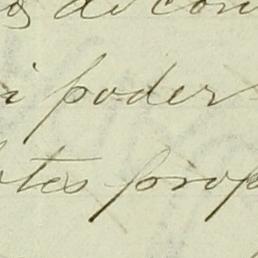 de con
i poder
tes prop